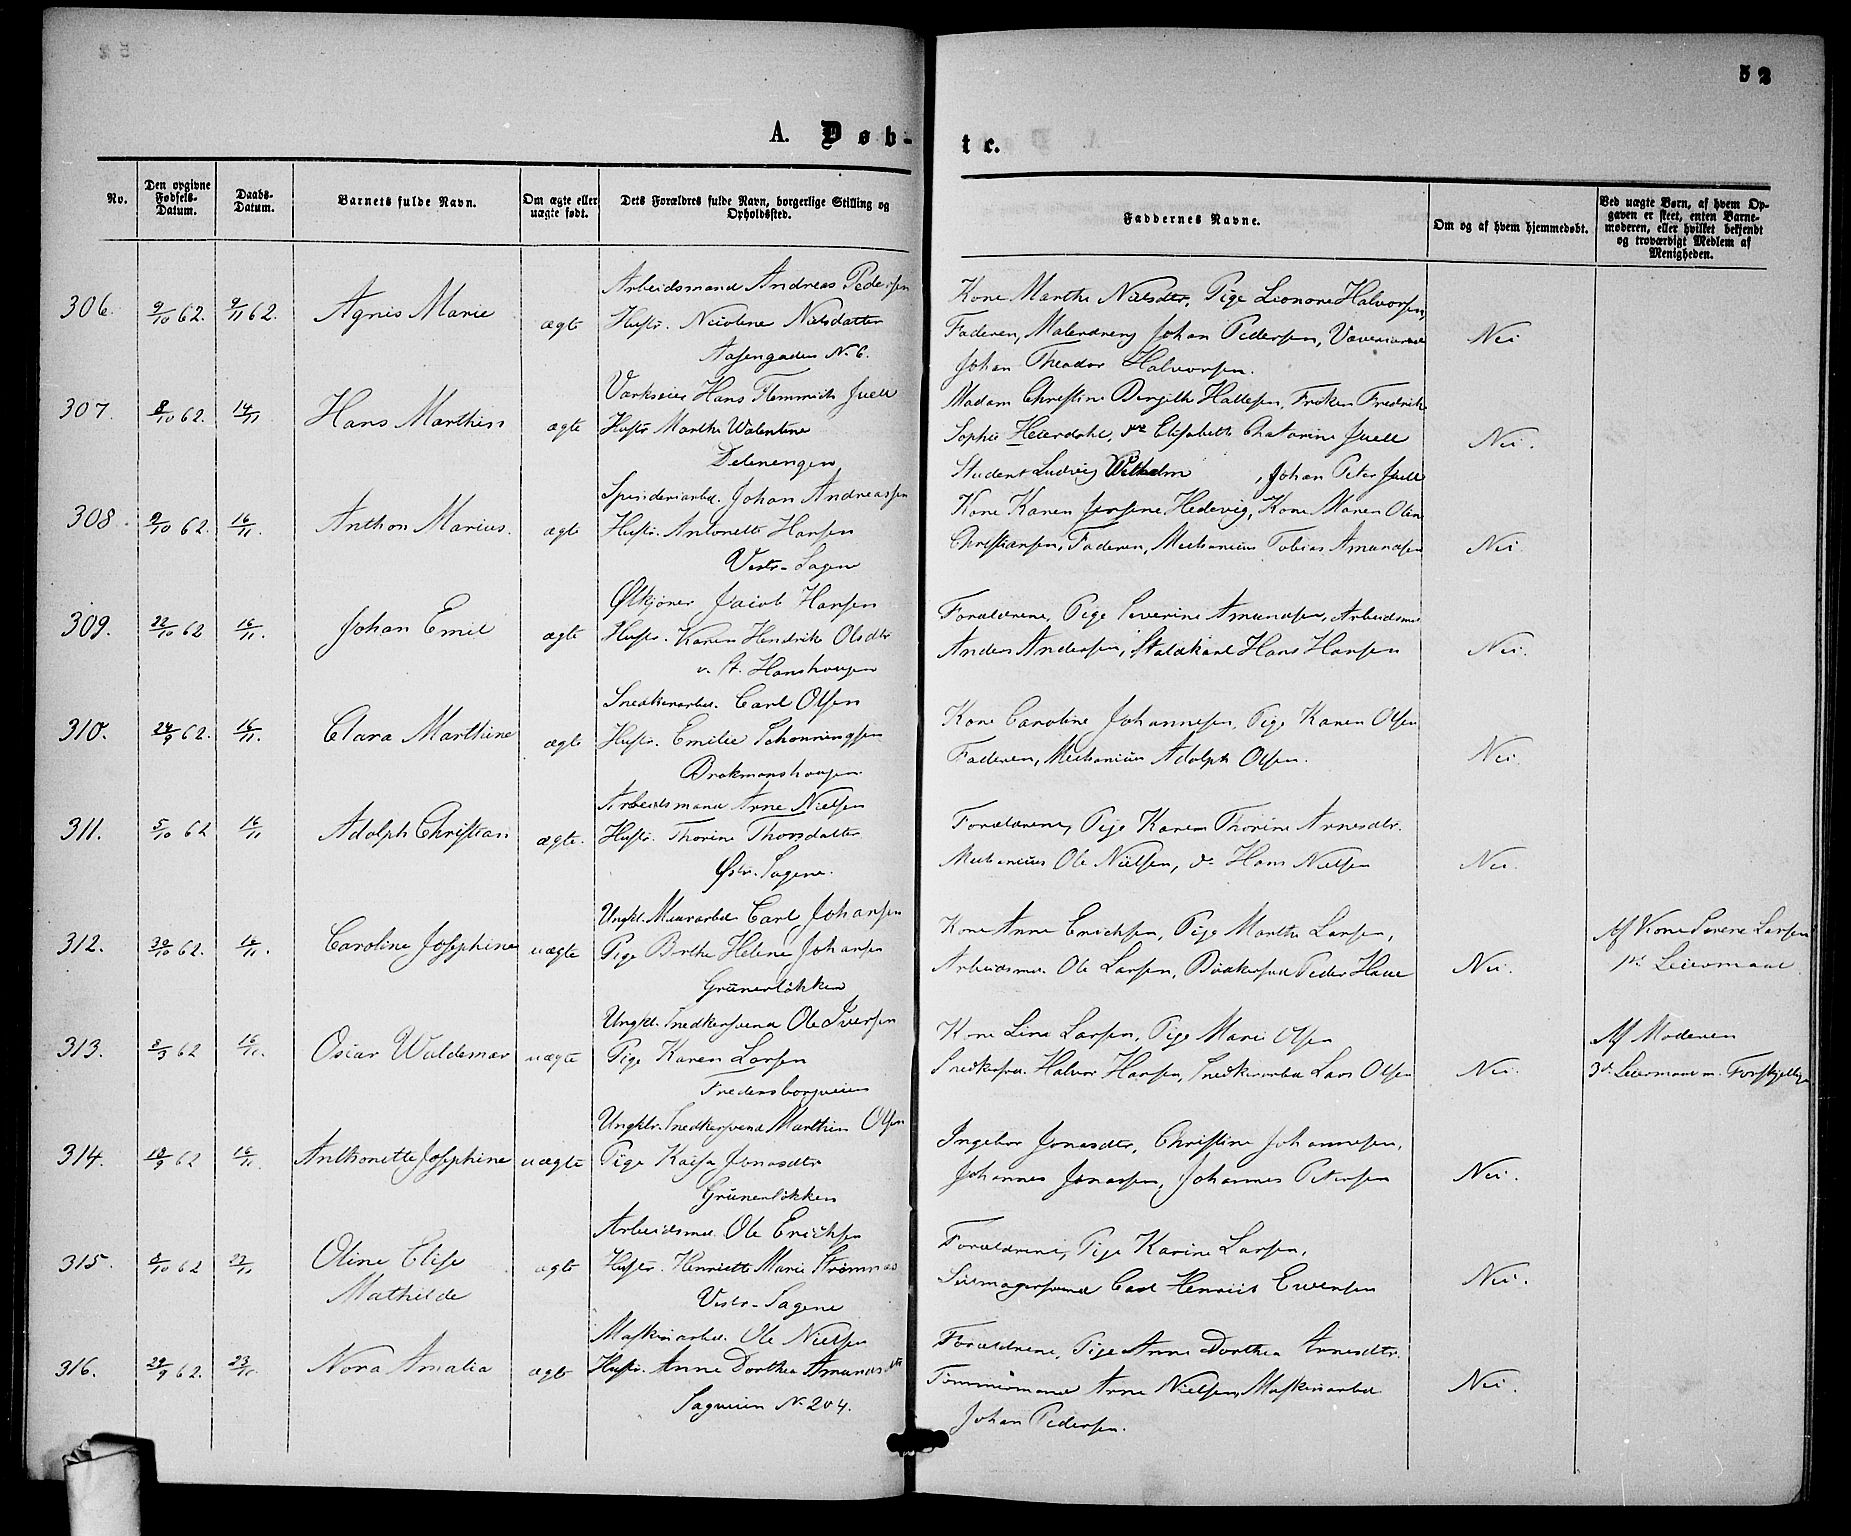 52
A. Døb-
te.
No.
Den opgivne Fødsels-Datum.
Daabs-Datum.
Barnets fulde Navn.
Om ægte eller uægte født.
Dets Forældres fulde Navn, borgerlige Stilling og Opholdssted.
Faddernes Navne.
Om og af hvem hjemmedøbt.
Ved uægte Børn, af hvem Opgaven er skeet, enten Barnemoderen, eller hvilket bekjendt og troværdigt Medlem af Menigheden.
306. 9/10 62. 9/11 62. Agnis Marie ægte
Arbeidsmand Andreas Pedersen
Hustr. Nicoline Nielsdatter
Aasengaden N. 6.
Kone Marthe Nielsdtr, Pige Lionore Halvorsen,
Faderen, Malerdreng Johan Pedersen,
Johan Theodor Halvorsen.
Nei
307. 8/10 62. 14/11. Hans Marthin ægte
Værkseier Hans Flemmich Juell
Hustr Marthe Walentine
Delenengen
Madam Christine Bergithe Hallesen, Frøken Fredrikke
Sophie Heierdahl, do Elisabeth Chatarine Juell
Student Ludvig Wilhelm , Johan Peter Juell
Nei.
308. 9/10 62. 16/11. Anthon Marius. ægte
Spinderiarbd. Johan Andreassen
Hustr. Antonette Hansen
Vestr. Sagene
Kone Karen Jensine Hedevig, Kone Maren Oline
Christiansen, Faderen, Mechanicus Tobias Amundsen
Nei.
309. 22/10 62 16/11. Johan Emil ægte
Ølkjører Jacob Hansen
Hustr. Karen Hendrikke Olsdtr
v. St. Hanshaugen
Forældrene, Pige Severine Amundsen, Arbeidsmd
Anders Andersen, Staldkarl Hans Hansen
Nei.
310. 24/9 62. 16/11. Clara Marthine ægte
Snedkerarbd. Carl Olsen
Hustr. Emilie Schønningsen
Brokmanshougen
Kone Caroline Johannesen, Pige Karen Olsen
Faderen, Mechanicus Adolph Olsen.
Nei.
311. 5/10 62 16/11 Adolph Christian ægte.
Arbeidsmand Arne Nielsen
Hustr. Thorine Thorsdatter
Østr. Sagene.
Forældrene, Pige Karen Thorine Arnesdtr.
Mechanicus Ole Nielsen, do Hans Nielsen
Nei.
312. 30/10 62. 16/11. Caroline Josephine uægte
Ungkl. Muurarbd. Carl Johansen
Pige Berthe Helene Johansen
Grünerløkken
Kone Anne Erichsen, Pige Marthe Larsen,
Arbeidsmd. Ole Larsen, Bødkersvd Peder Haue
Nei.
Af Kone Serene Larsen
1ste Leiermaal
313. 8/9 62 16/11. Oscar Waldemar uægte
Ungkl. Snedkersvend Ole Iversen
Pige Karen Larsen
Fredensborgveien
Kone Lina Larsen, Pige Marie Olsen
Snedkersvd. Halvor Hansen, Snedkerarbd Lars Olsen
Nei.
Af Moderen
3die Leiermaal m. Forskjellige
314. 18/9 62 16/11. Anthonette Josephine uægte
Ungkl. Snedkersvend Marthin Olsen
Pige Kaisa Jonasdtr
Grünerløkken
Ingebor Jonasdtr, Christine Johannesen,
Johannes Jonassen, Johannes Petersen
Nei.
315. 8/10 62 23/11 Oline Elise
Mathilde ægte
Arbeidsmd. Ole Erichsen
Hustr. Henriette Marie Strømnæs
Vestr. Sagene
Forældrene, Pige Karine Larsen,
Seilmagersvend Carl Henrich Evensen
Nei.
316. 29/9 62. 23/11. Nora Amalia ægte
Maskinarbd. Ole Nielsen
Hustr. Anne Dorthea Amundsdtr
Sagveien N. 204.
Forældrene, Pige Anne Dorthea Arnesdtr.
Tømmermand Arne Nielsen, Maskinarbd
Johan Pedersen.
Nei.